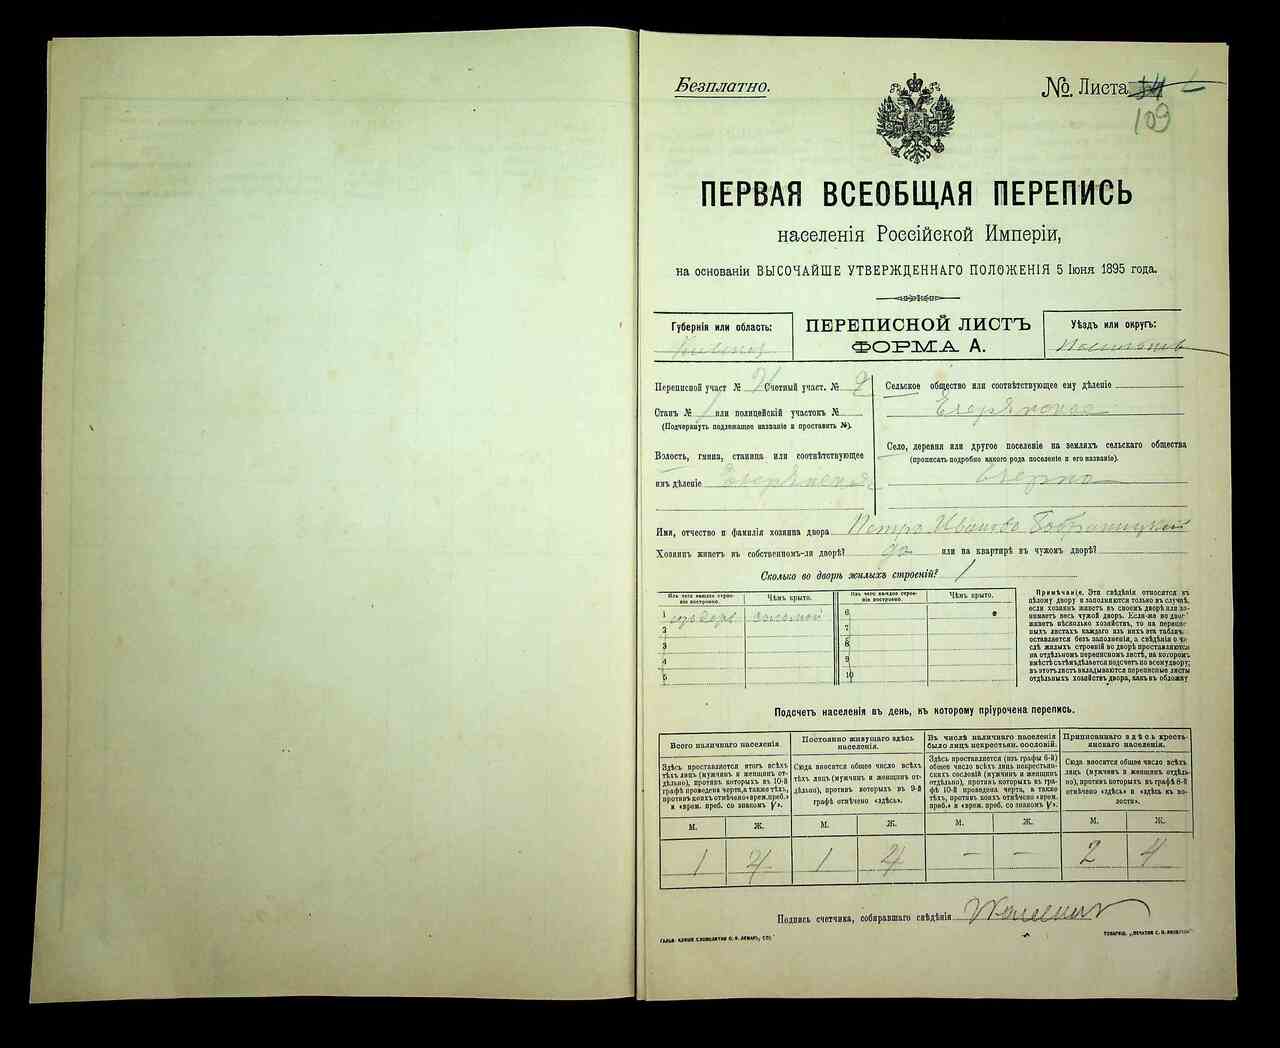 Безплатно.
№. Листа 34
109
ПЕРВАЯ ВСЕОБЩАЯ ПЕРЕПИСЬ
населенія Россійской Имперіи,
на основаніи ВЫСОЧАЙШЕ УТВЕРЖДЕННАГО ПОЛОЖЕНІЯ 5 Іюня 1895 года.
Губернія или область:
ПЕРЕПИСНОЙ ЛИСТЪ
ФОРМА А.
Уѣздъ или округъ:
Переписной участ № Счетный участ. №
Станъ № или полицейскій участокъ №
(Подчеркнуть подлежащее названіе и проставить №).
Волость, гмина, станица или соотвѣтствующее
имъ дѣленіе
Сельское общество или соотвѣтствующее ему дѣленіе
Село, деревня или другое поселеніе на земляхъ сельскаго общества
(прописать подробно какого рода поселеніе и его названіе).
Имя, отчество и фамилія хозяина двора Петро Ивановъ
Хозяинъ живетъ въ собственномъ-ли дворѣ? да или на квартирѣ въ чужомъ дворѣ?
Сколько во дворѣ жилыхъ строеній? 1
Изъ чего каждое строе-
ніе построено.
Чѣмъ крыто.
Изъ чего каждое строе-
ніе построено.
Чѣмъ крыто.
1 соломой
2
3
4
5
6
7
8
9
10
Примѣчаніе. Эти свѣдѣнія относятся къ
цѣлому двору и заполняются только въ случаѣ,
если хозяинъ живетъ въ своемъ дворѣ или за-
нимаетъ весь чужой дворъ. Если-же во дворѣ
живетъ нѣсколько хозяйствъ, то на перепис-
ныхъ листахъ каждаго изъ нихъ эта табличка
оставляется безъ заполненія, а свѣдѣнія о чи-
слѣ жилыхъ строеній во дворѣ проставляются
на отдѣльномъ переписномъ листѣ, на которомъ
вмѣстѣ съ тѣмъ дѣлается подсчетъ по всему двору;
въ этотъ листъ вкладываются переписные листы
отдѣльныхъ хозяйствъ двора, какъ въ обложку
Подсчетъ населенія въ день, къ которому пріурочена перепись.
Всего наличнаго населенія.
Здѣсь проставляется итогъ всѣхъ
тѣхъ лицъ (мужчинъ и женщинъ от-
дѣльно), противъ которыхъ въ 10-й
графѣ проведена черта, а также тѣхъ,
противъ коихъ отмѣчено «врем. преб.»
и «врем. преб. со знакомъ V».
Постоянно живущаго здѣсь
населенія.
Сюда вносится общее число всѣхъ
тѣхъ лицъ (мужчинъ и женщинъ от-
дѣльно), противъ которыхъ въ 9-й
графѣ отмѣчено «здѣсь».
Въ числѣ наличнаго населенія
было лицъ некрестьян. сословій.
Здѣсь проставляется (изъ графы 6-й)
общее число всѣхъ лицъ некрестьян-
скихъ сословій (мужчинъ и женщинъ
отдѣльно), противъ которыхъ въ гра-
фѣ 10-й проведена черта, а также
тѣхъ, противъ коихъ отмѣчено «врем.
преб.» и «врем. преб. со знакомъ V».
Приписаннаго здѣсь кресть-
янскаго населенія.
Сюда вносится общее число всѣхъ
лицъ (мужчинъ и женщинъ отдѣль-
но), противъ которыхъ въ графѣ 8-й
отмѣчено «здѣсь» и «здѣсь къ во-
лости».
М. Ж. М. Ж. М. Ж. М. Ж.
1 4 1 4 – – 2 4
Подпись счетчика, собиравшаго свѣдѣнія